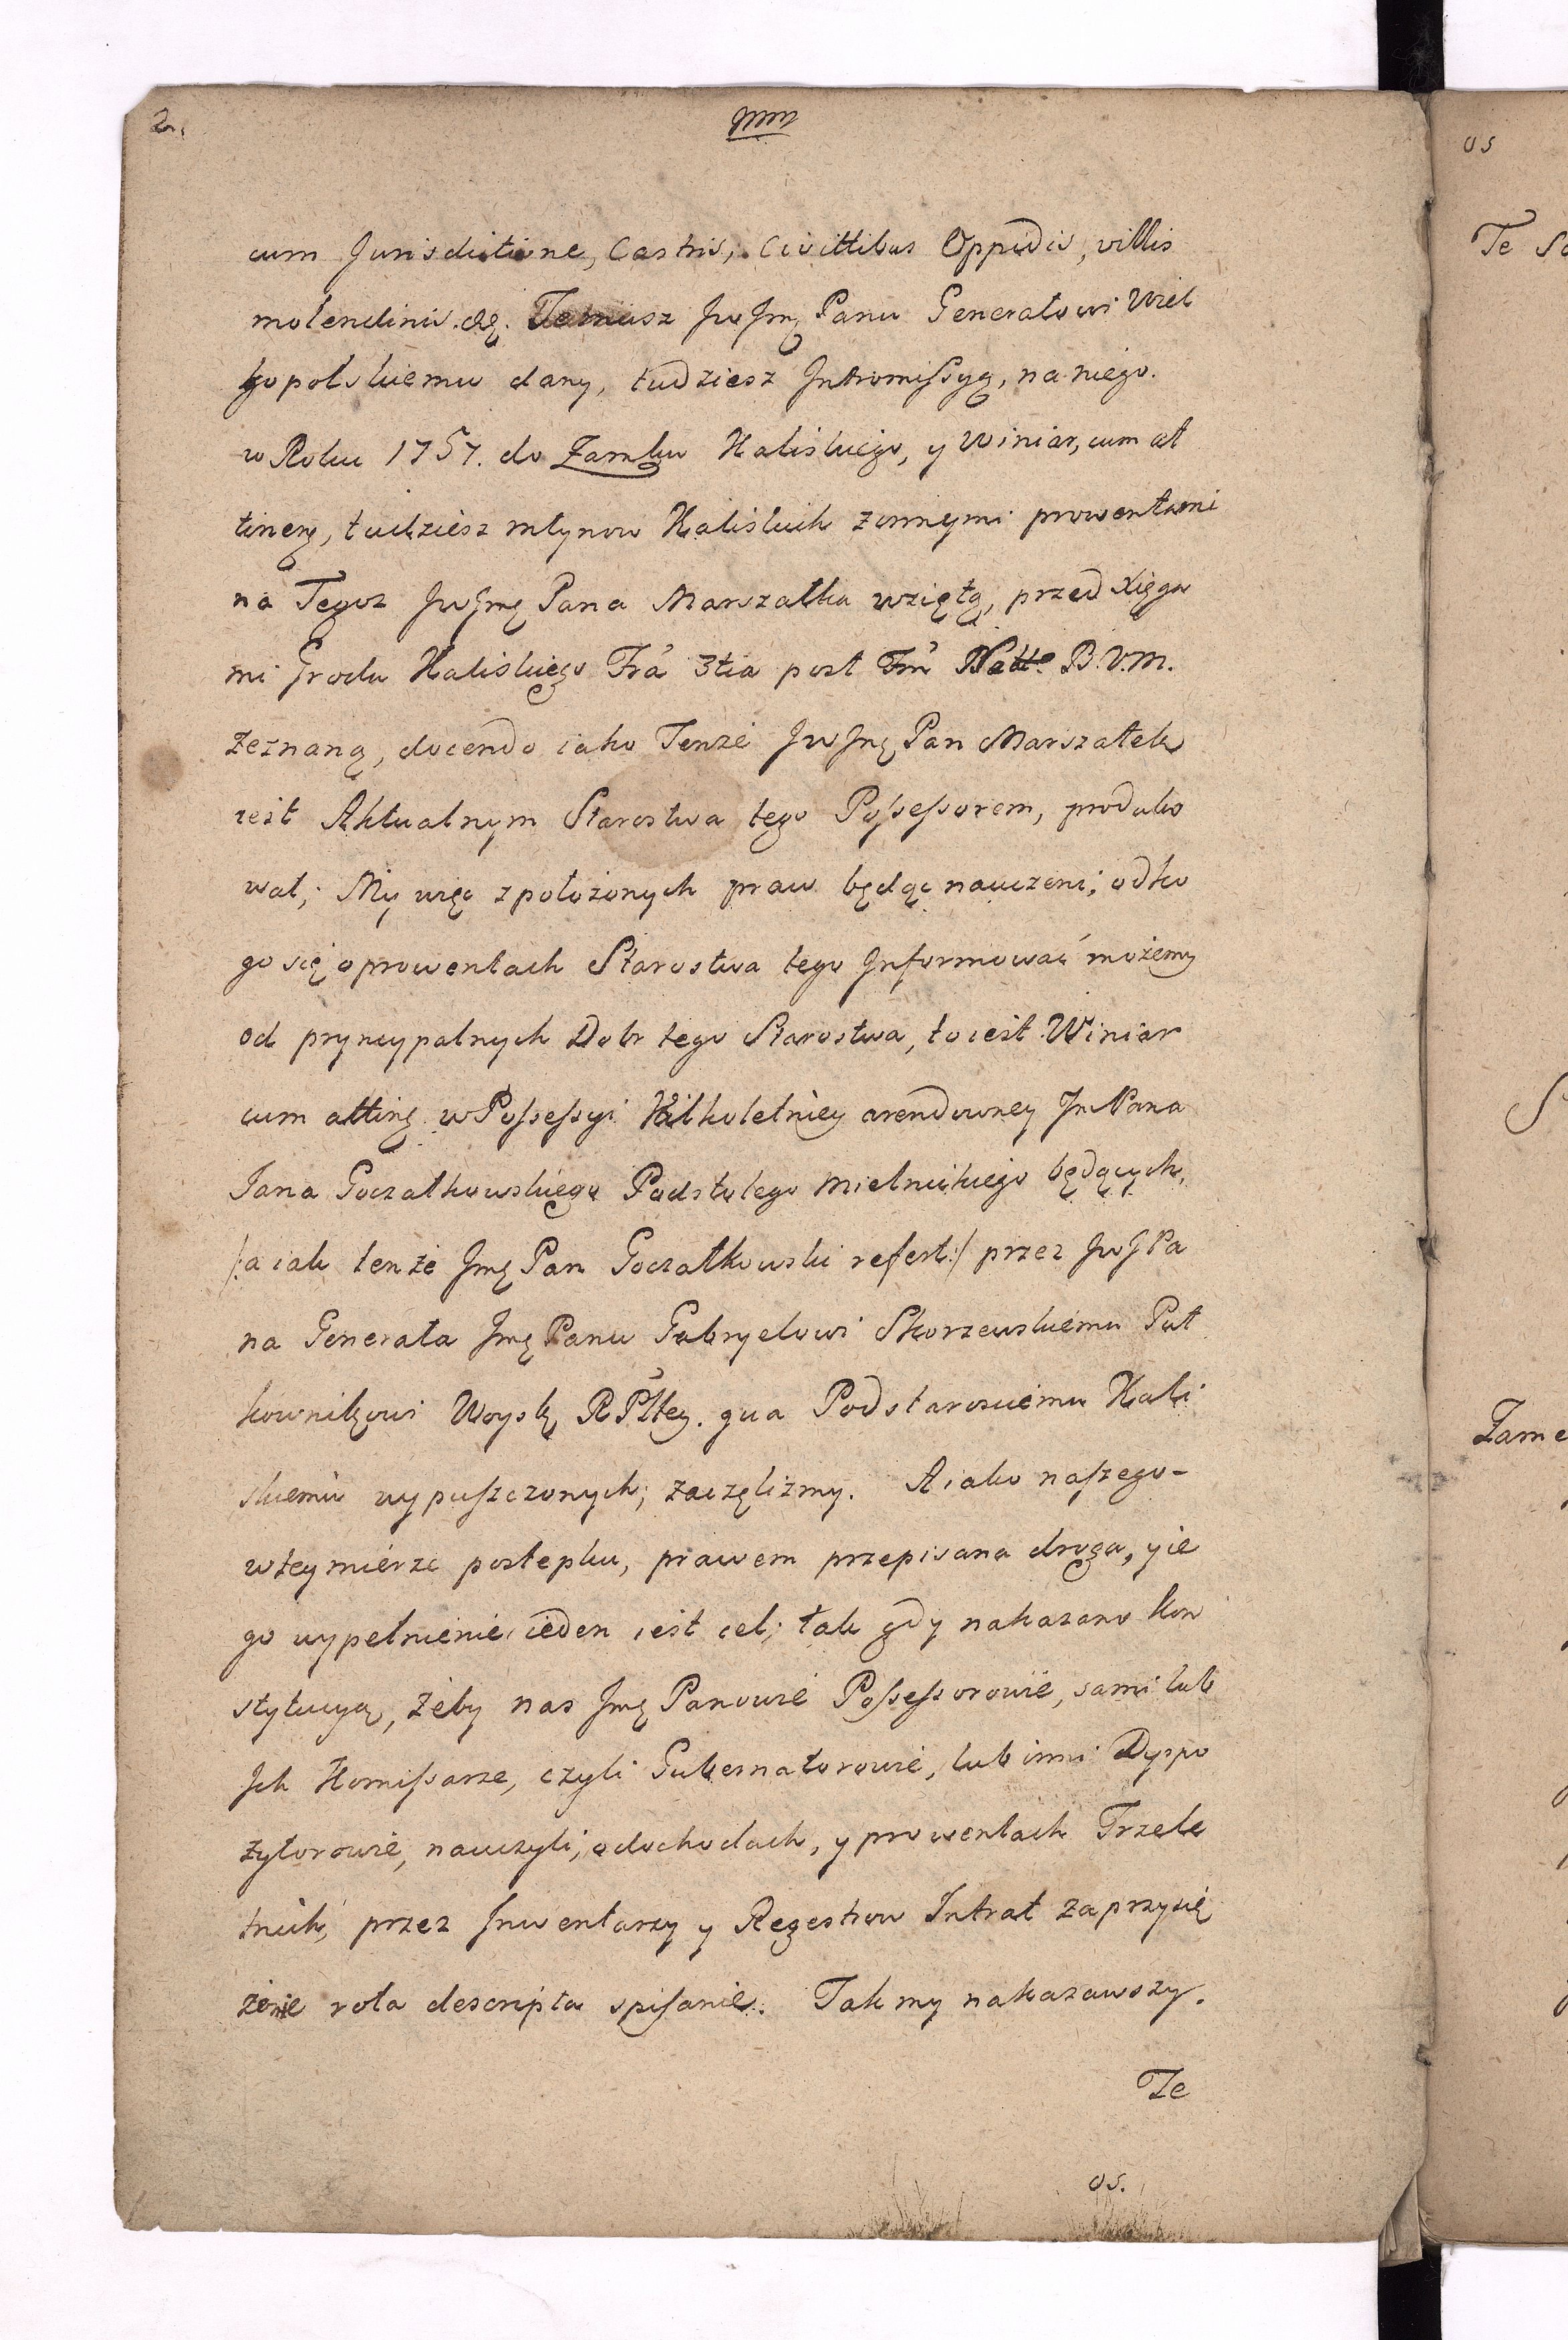 2.
cum Jurisdictione, Castris, Civittibus Oppidis, villis
molendinis. &c. Temusz JwJmę Panu Generałowi Wiel
kopolskiemu dany, tudziesz Intromissyą, na niego.
w Roku 1757. do Zamku Kaliskiego, y Winiar, cum at
tinen, tudziesz młynow Kaliskich zinnymi prowentami
na Tegoz JwJmę Pana Marszałka wziętą, przed Xięga
mi Grodu Kaliskiego Fra 3tia post Fm Natte B.V.M.
zeznaną, docendo iako Tenże JwJmę Pan Marszałek
iest Aktualnym Starostwa tego Possessorem, produko
wał; My więc zpołożonych praw będąc nauczeni; odko
go się oprowentach Starostwa tego Informować możemy
od pryncypalnych Dobr tego Starostwa, to iest Winiar
cum attinę w Possessyi Kilkoletniey arendowney JmPana
Jana Goczałkowskiego Podstolego Mielnickiego będących,
/:a iak tenże Jmę Pan Goczałkowski refert:/ przez JwJPa
na Generała Jmę Panu Gabryelowi Skorzewskiemu Puł
kownikowi Woysk RPltey. qua Podstarosciemu Kali
skiemu wypuszczonych; zaczęlizmy. A iako naszego-
wtey mierze postepku, prawem przepisana droga, y ie
go wypełnienie ieden iest cel; tak gdy nakazano kon
stytucyą, żeby nas Jmę Panowie Possessorowie, sami lub
Jch Komissarze, czyli Gubernatorowie, lub inni Dyspo
zytorowie, nauczyli, odochodach, y prowentach Trzele
tnich, przez Inwentarzy y Regestrow Intrat zaprzysię
żenie rota descripta spisanie. Tak my nakazawszy.
Te
os.
os
Te
Zame